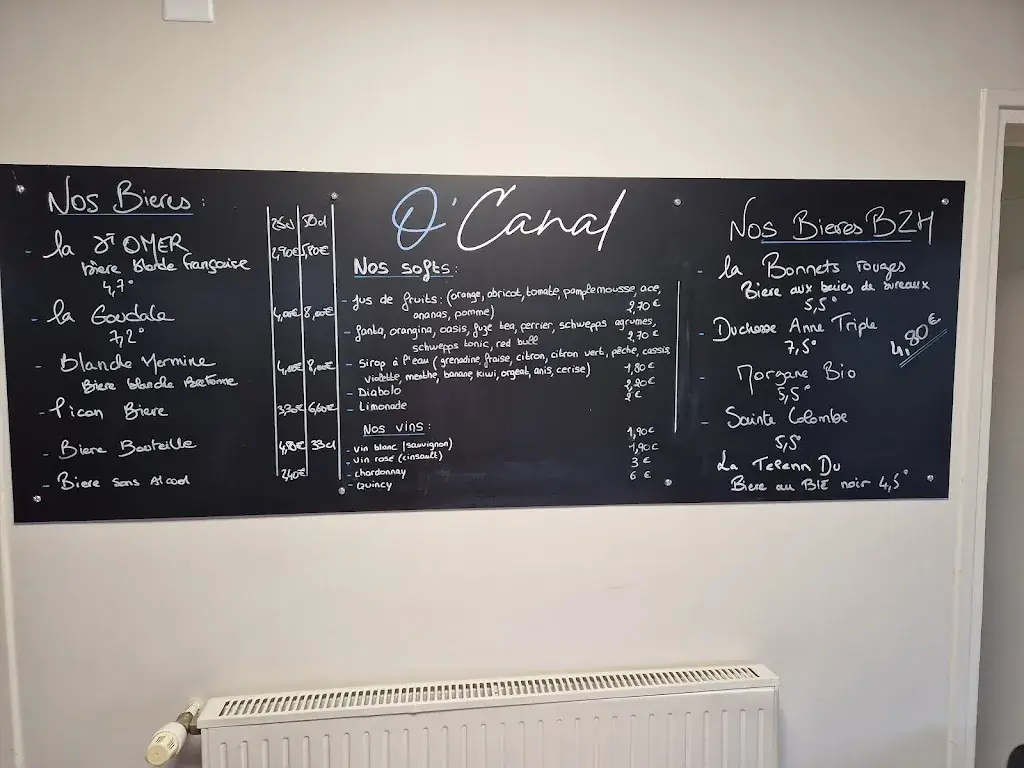 Nos Bieres :
25cl 50cl
- la St OMER 2,90€ 5,80€
bière blonde française
4,7°
- la Goudale 4,00€ 8,00€
7,2°
- Blanche Hermine 4,00€ 8,00€
Biere blanche Bretonne
- Picon Biere 3,30€ 6,60€
- Biere Bouteille 4,80€ 33cl
- Biere sans Alcool 2,40€
O'Canal
Nos softs :
- Jus de fruits : (orange, abricot, tomate, pamplemousse, ace,
ananas, pomme) 2,70€
- fanta, orangina, oasis, fuze tea, perrier, schwepps agrumes,
schwepps tonic, red bull 2,70€
- Sirop à l'eau (grenadine, fraise, citron, citron vert, pêche, cassis,
violette, menthe, banane, kiwi, orgeat, anis, cerise) 1,80€
- Diabolo 2,20€
- Limonade 2€
Nos vins :
- vin blanc (sauvignon) 1,90€
- vin rosé (cinsault) 1,90€
- chardonnay 3€
- Quincy 6€
Nos Bieres BZH
- la Bonnets rouges
Biere aux baies de sureaux
5,5°
- Duchesse Anne Triple
7,5°
4,80€
- Morgane Bio
5,5°
- Sainte Colombe
5,5°
- La Telenn Du
Biere au Blé noir 4,5°